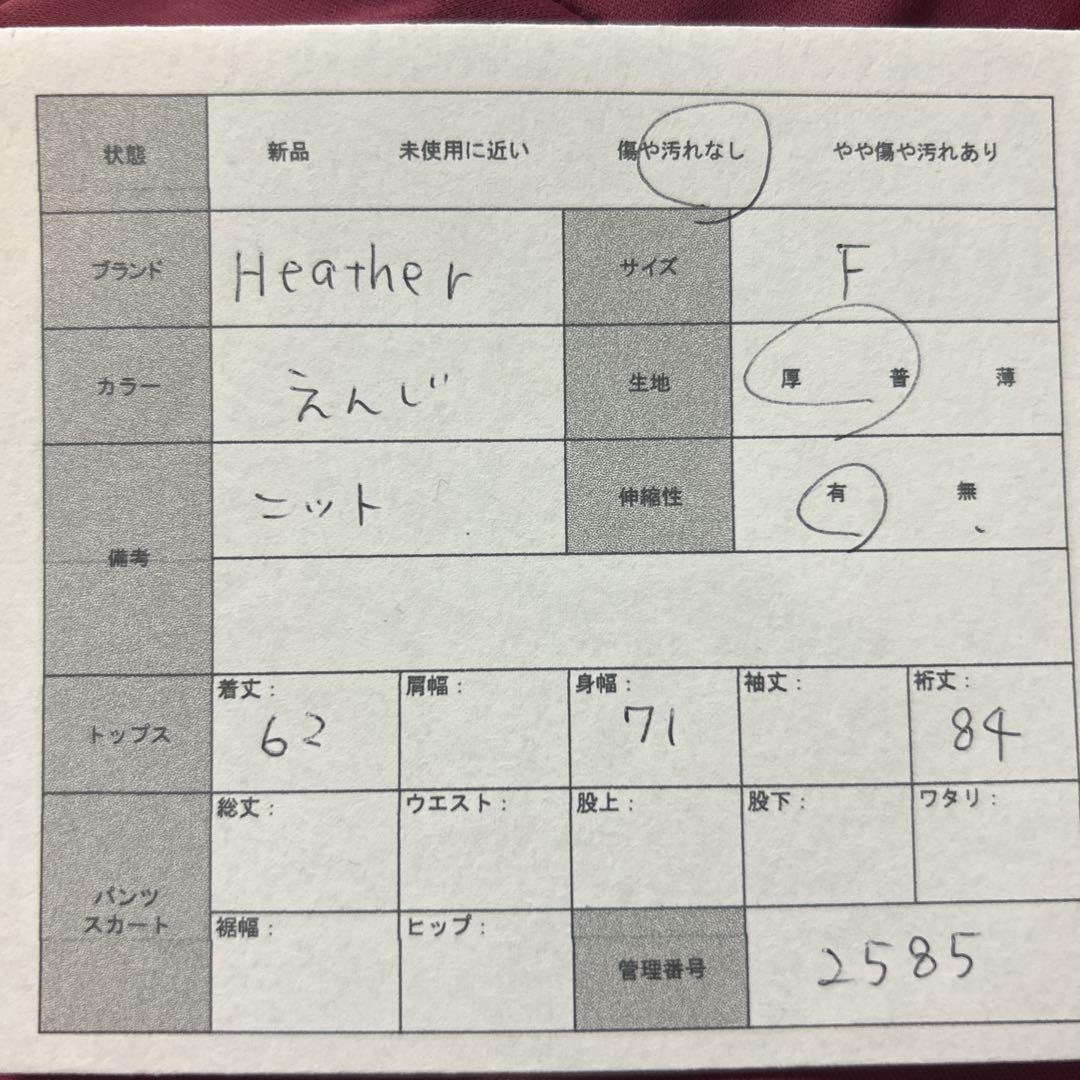 状態 新品 未使用に近い 傷や汚れなし やや傷や汚れあり
ブランド Heather サイズ F
カラー えんじ 生地 厚 普 薄
備考 ニット 伸縮性 有 無
トップス 着丈: 62 肩幅: 身幅: 71 袖丈: 裄丈: 84
パンツ スカート 総丈: ウエスト: 股上: 股下: ワタリ:
裾幅: ヒップ: 管理番号 2585